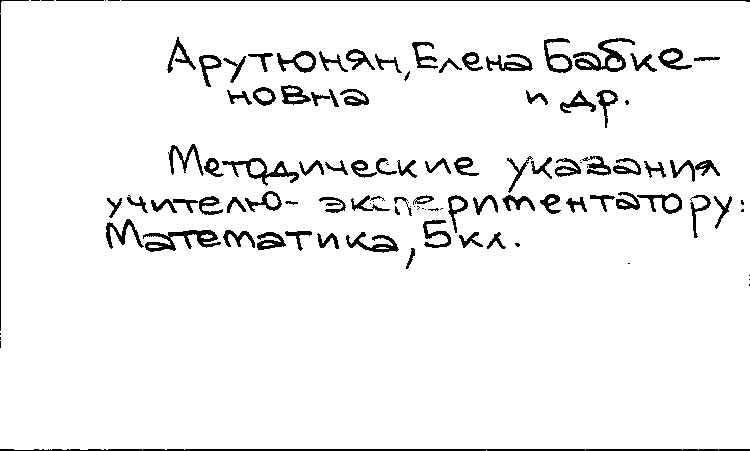 Арутюнян, Елена Бабке-
новна и др.
Методические указания
учителю- экспериментатору:
Математика, 5 кл.